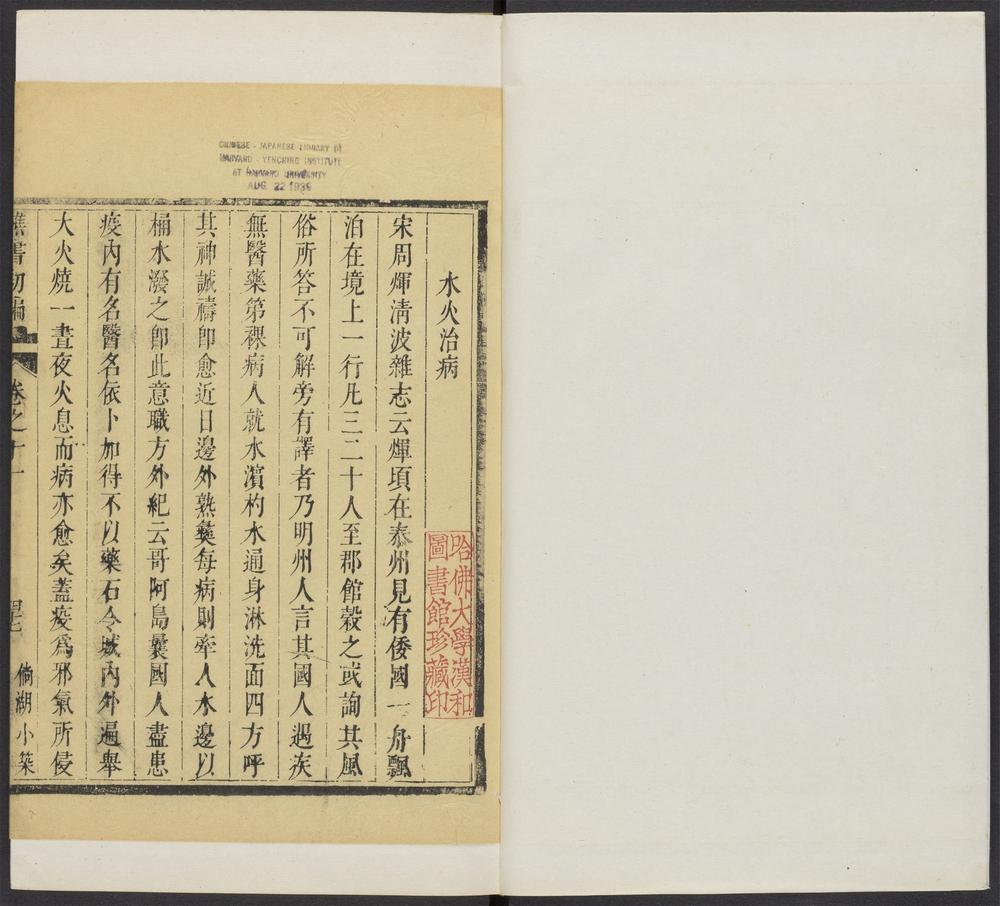 CHINESE - JAPANESE LIBRARY OF
HARVARD - YENCHING INSTITUTE
AT HARVARD UNIVERSITY
AUG 22 1938
水火治病
哈佛大學漢和
圖書館珍藏印
宋周煇淸波雜志云煇頃在泰州見有倭國一舟飄
泊在境上一行凡三二十人至郡館穀之或詢其風
俗所答不可解旁有譯者乃明州人言其國人遇疾
無醫藥第裸病人就水濱杓水通身淋洗面四方呼
其神誠禱卽愈近日邊外熟彝每病則牽人水邊以
桶水潑之卽此意職方外紀云哥阿島曩國人盡患
疫內有名醫名依卜加得不以藥石令城內外遍舉
大火燒一晝夜火息而病亦愈矣蓋疫爲邪氣所侵
樵書初編
卷之十一
倘湖小築